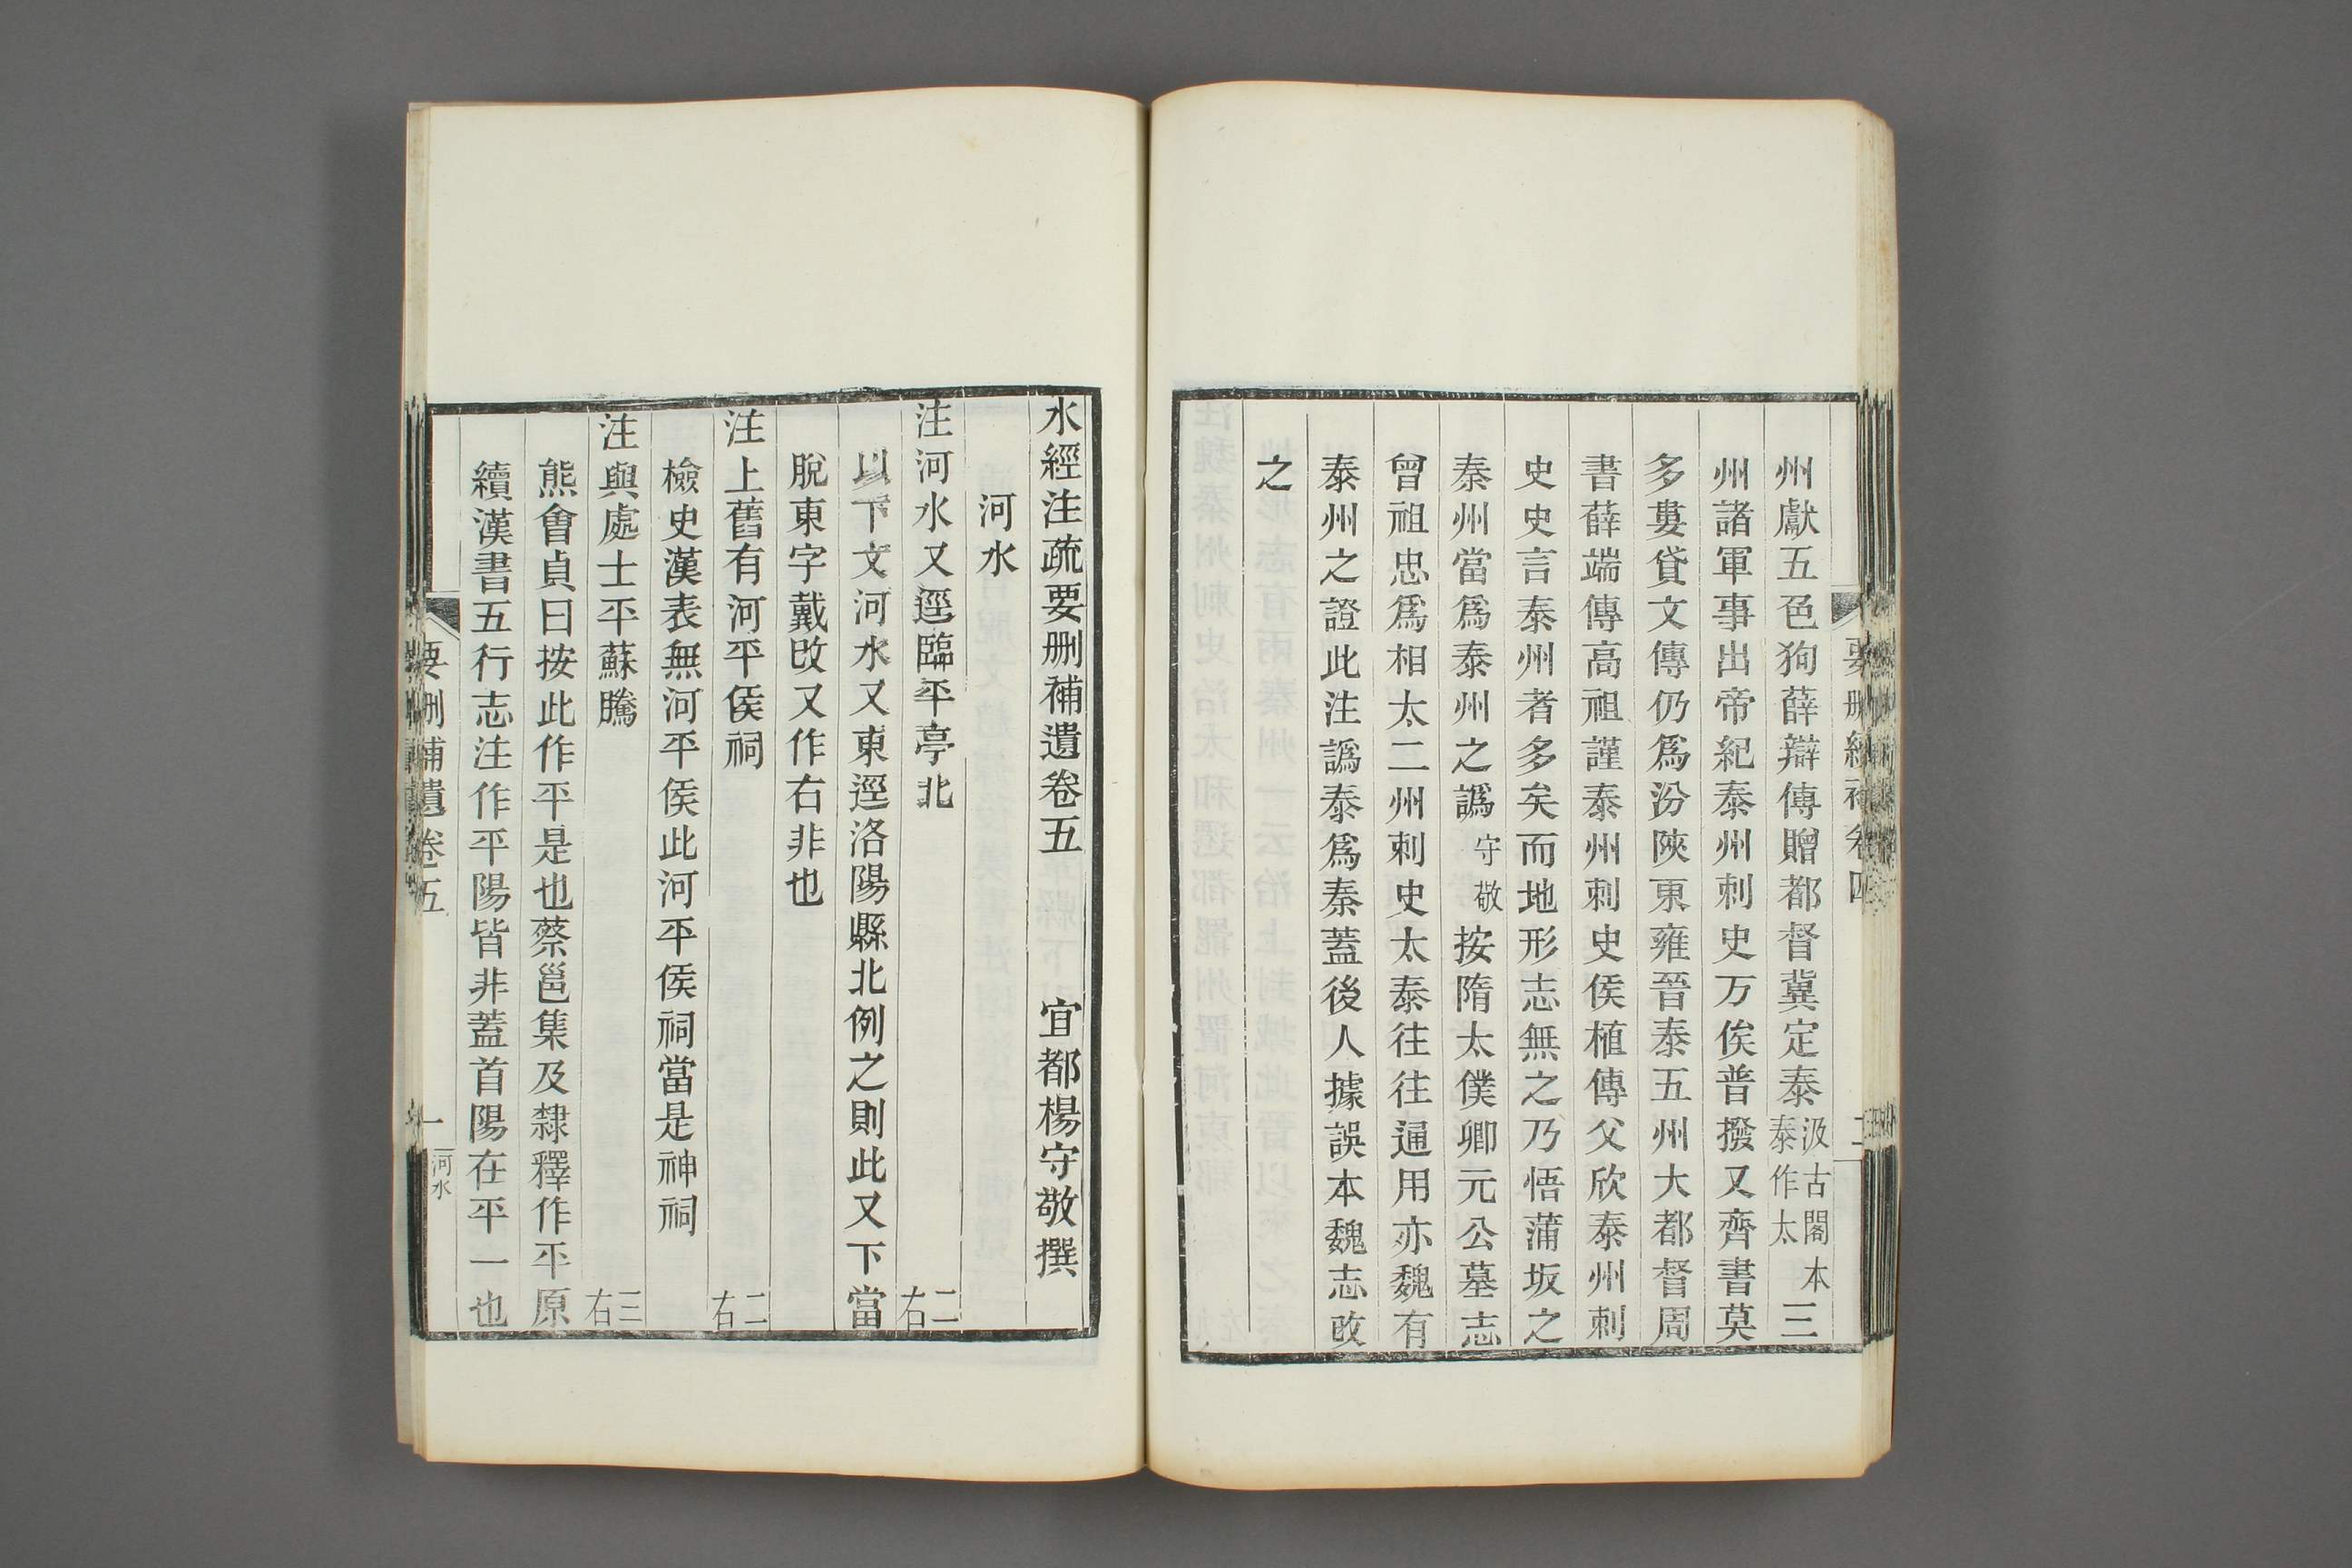 州獻五色狗薛辯傳贈都督冀定泰汲古閣本泰作太三
州諸軍事出帝紀泰州刺史万俟普撥又齊書莫
多婁貸文傳仍爲汾陝東雍晉泰五州大都督周
書薛端傳高祖謹泰州刺史侯植傳父欣泰州刺
史史言泰州者多矣而地形志無之乃悟蒲坂之
秦州當爲泰州之譌守敬按隋太僕卿元公墓志
曾祖忠爲相太二州刺史太泰往往通用亦魏有
泰州之證此注譌泰爲秦蓋後人據誤本魏志改
之
水經注疏要删補遺卷五 宜都楊守敬撰
河水
注河水又逕臨平亭北 二右
以下文河水又東逕洛陽縣北例之則此又下當
脫東字戴改又作右非也
注上舊有河平侯祠 二右
檢史漢表無河平侯此河平侯祠當是神祠
注與處士平蘇騰 三右
熊會貞曰按此作平是也蔡邕集及隸釋作平原
續漢書五行志注作平陽皆非蓋首陽在平一也
要删補遺卷五 一 河水